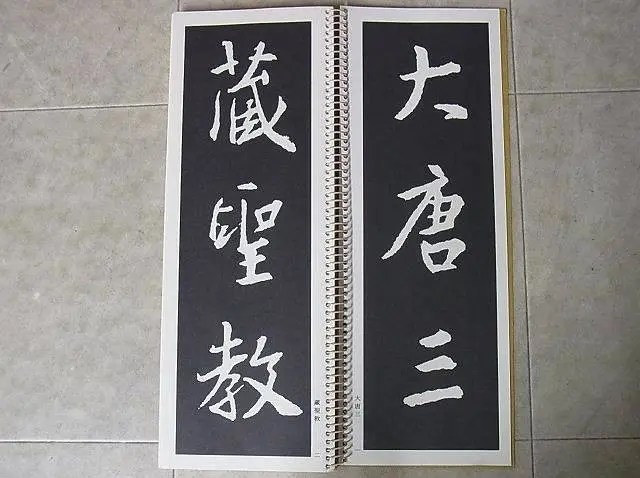 大唐三
大唐三
藏聖教
藏聖教
二